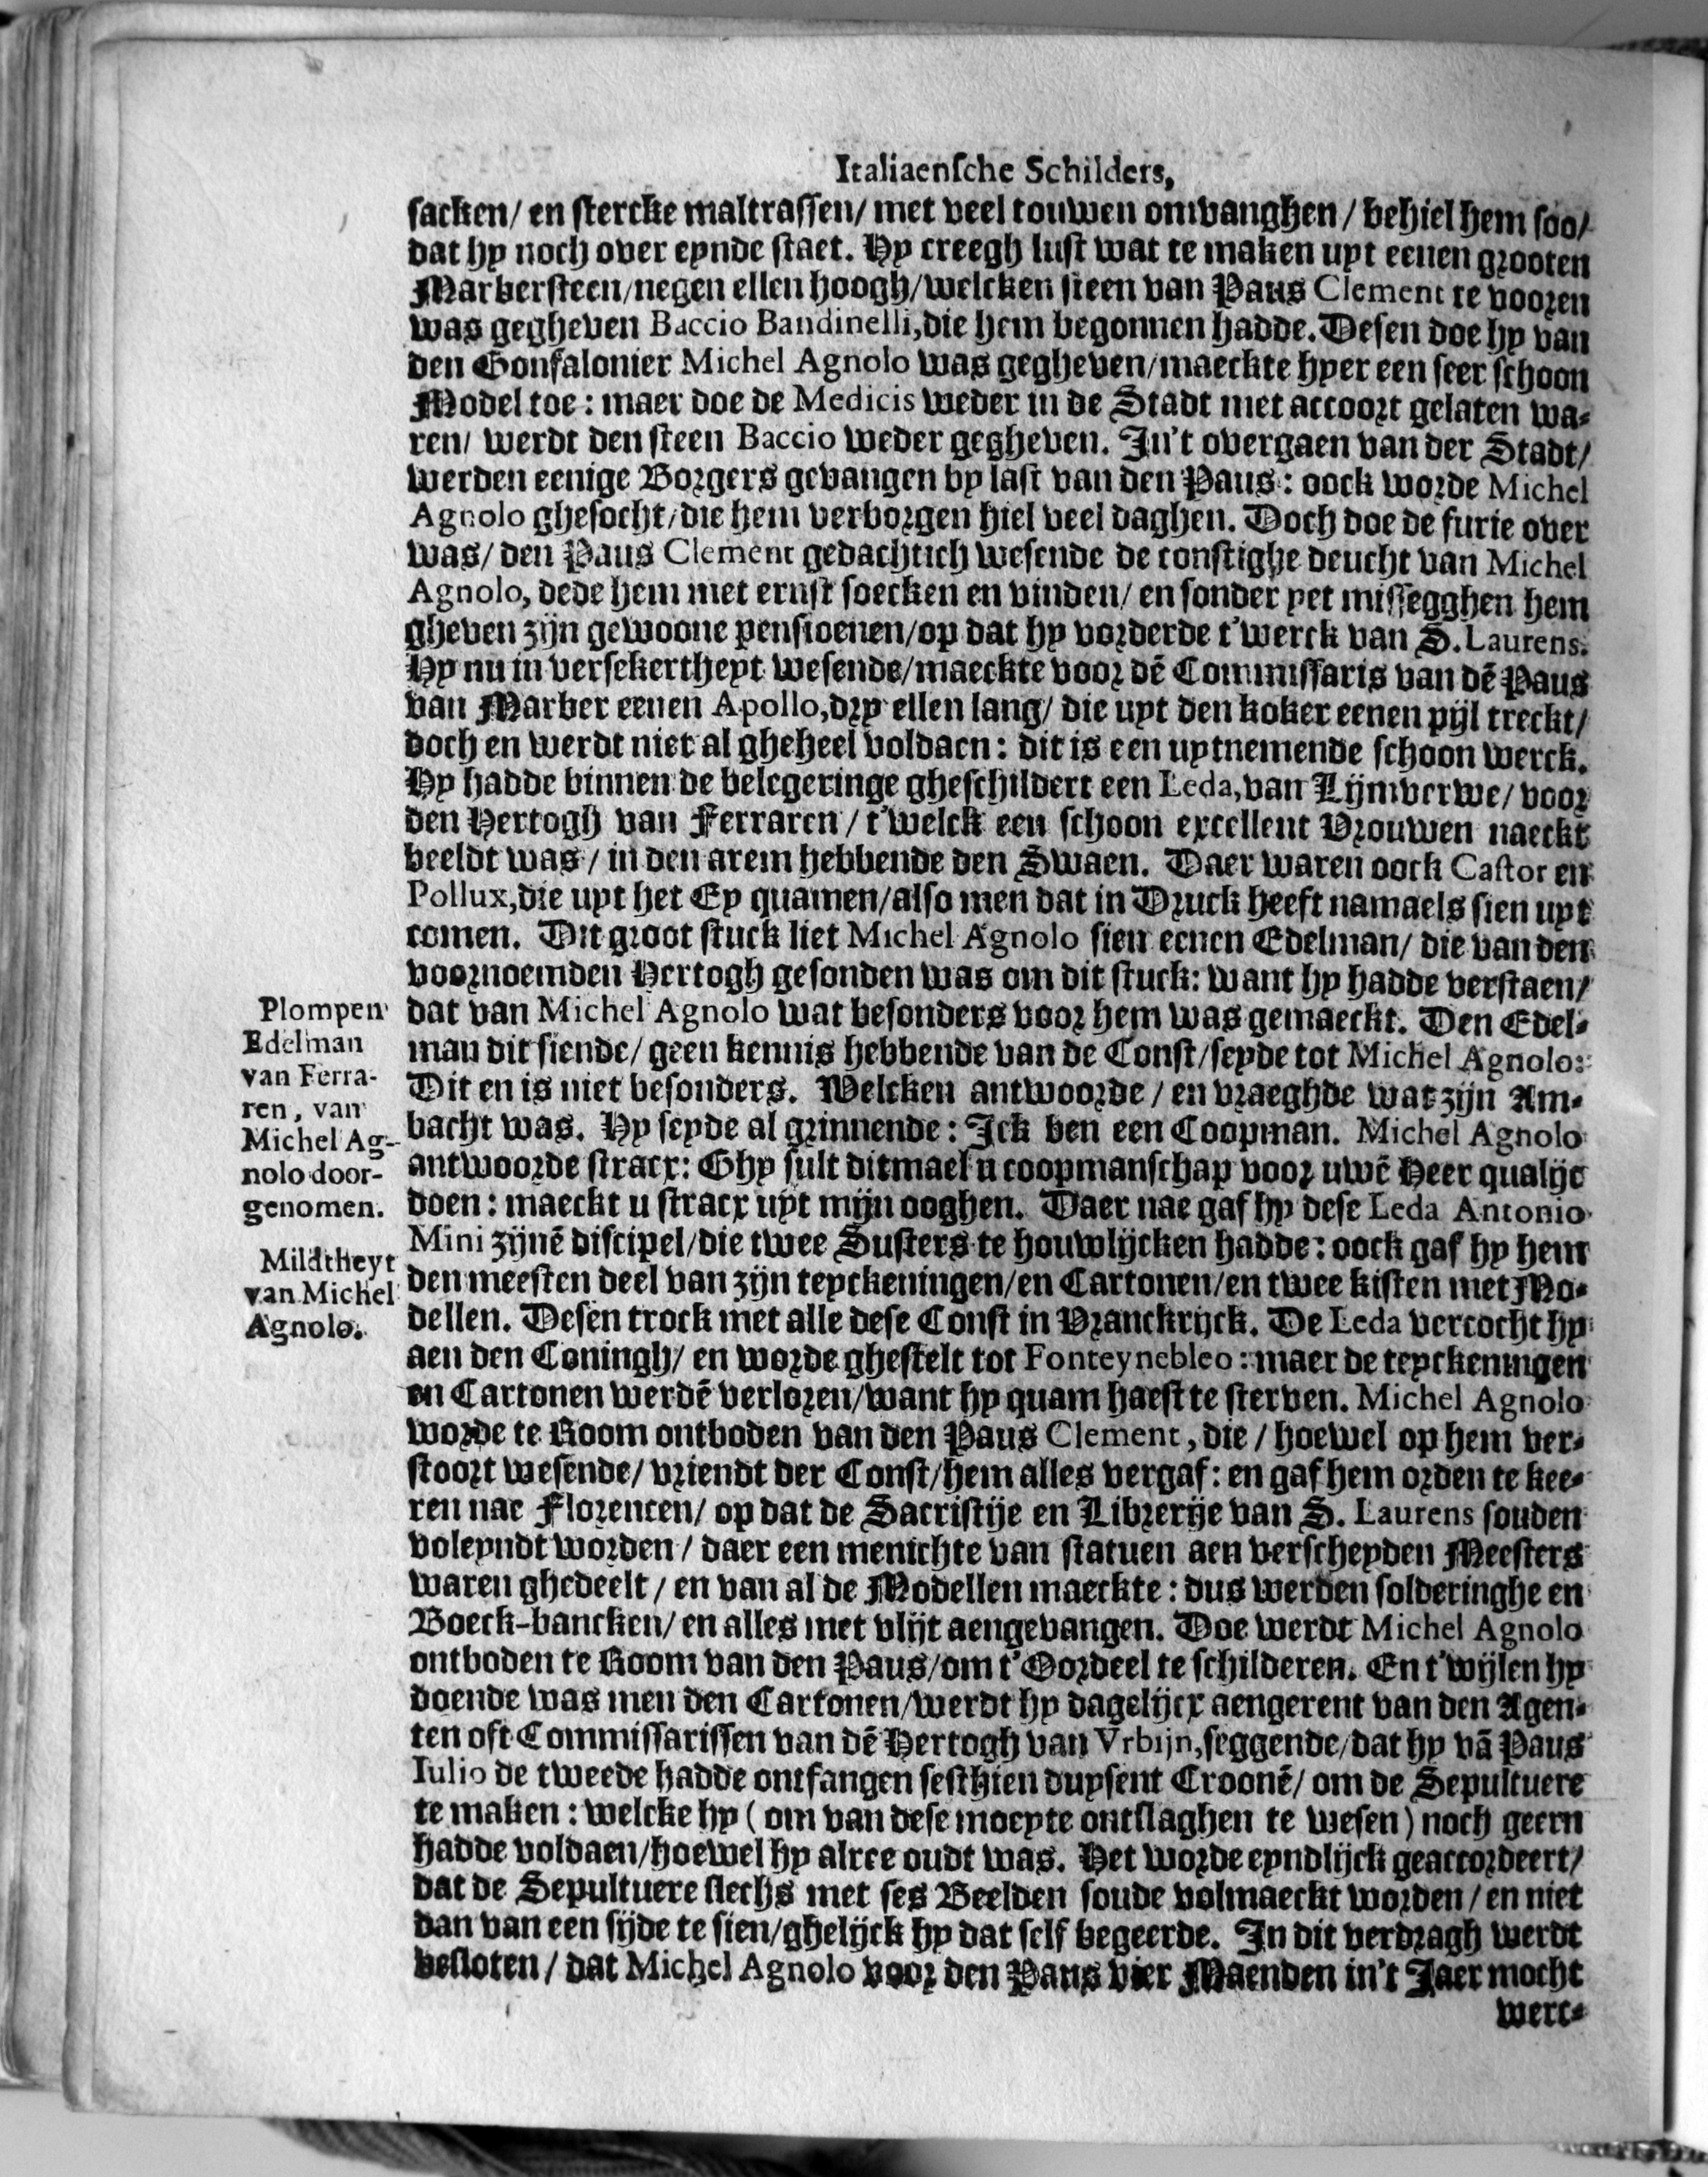 Italiaensche Schilders,
sacken/ en stercke maltrassen/ met veel touwen omvanghen / behiel hem soo/
dat hy noch over eynde staet. Hy creegh lust wat te maken uyt eenen grooten
Marbersteen/negen ellen hoogh/welcken steen van Paus Clement te vooren
was gegheven Baccio Bandinelli,die hem begonnen hadde. Desen doe hy van
den Gonfalonier Michel Agnolo was gegheven/maeckte hyer een seer schoon
Model toe : maer doe de Medicis weder in de Stadt met accoort gelaten wa-
ren/ werdt den steen Baccio weder gegheven. In't overgaen van der Stadt/
werden eenige Borgers gevangen by last van den Paus : oock worde Michel
Agnolo ghesocht/die hem verborgen hiel veel daghen. Doch doe de furie over
was/ den Paus Clement gedachtich wesende de constighe deucht van Michel
Agnolo, dede hem met ernst soecken en vinden/ en sonder yet missegghen hem
gheven zijn gewoone pensioenen/op dat hy vorderde t'werck van S. Laurens.
Hy nu in versekertheyt wesende/maeckte voor dē Commissaris van dē Paus
van Marber eenen Apollo,dry ellen lang/ die uyt den koker eenen pijl treckt/
doch en werdt niet al gheheel voldaen : dit is een uytnemende schoon werck.
Hy hadde binnen de belegeringe gheschildert een Leda,van Lijmverwe/ voor
den Hertogh van Ferraren / t'welck een schoon excellent Vrouwen naeckt
beeldt was / in den arem hebbende den Swaen. Daer waren oock Castor en
Pollux,die uyt het Ey quamen/also men dat in Druck heeft namaels sien uyt
comen. Dit groot stuck liet Michel Agnolo sien eenen Edelman/ die van den
voornoemden Hertogh gesonden was om dit stuck: want hy hadde verstaen/
dat van Michel Agnolo wat besonders voor hem was gemaeckt. Den Edel-
man dit siende/ geen kennis hebbende van de Const/seyde tot Michel Agnolo:
Dit en is niet besonders. Welcken antwoorde / en vraeghde wat zijn Am-
bacht was. Hy seyde al grinnende : Ick ben een Coopman. Michel Agnolo
antwoorde stracx: Ghy sult ditmael u coopmanschap voor uwē Heer qualijc
doen : maeckt u stracx uyt mijn ooghen. Daer nae gaf hy dese Leda Antonio
Mini zijnē discipel/die twee Susters te houwlijcken hadde : oock gaf hy hem
den meesten deel van zijn teyckeningen/en Cartonen/en twee kisten met Mo-
dellen. Desen trock met alle dese Const in Vranckrijck. De Leda vercocht hy
aen den Coningh/ en worde ghestelt tot Fonteynebleo : maer de teyckeningen
en Cartonen werdē verloren/want hy quam haest te sterven. Michel Agnolo
worde te Room ontboden van den Paus Clement, die / hoewel op hem ver-
stoort wesende/ vriendt der Const/hem alles vergaf : en gaf hem orden te kee-
ren nae Florencen/ op dat de Sacristije en Librerije van S. Laurens souden
voleyndt worden / daer een menichte van statuen aen verscheyden Meesters
waren ghedeelt / en van al de Modellen maeckte : dus werden solderinghe en
Boeck-bancken/ en alles met vlijt aengevangen. Doe werdt Michel Agnolo
ontboden te Room van den Paus/om t'Oordeel te schilderen. En t'wijlen hy
doende was men den Cartonen/werdt hy dagelijcx aengerent van den Agen-
ten oft Commissarissen van dē Hertogh van Vrbijn,seggende/dat hy vā Paus
Iulio de tweede hadde ontfangen sesthien duysent Croonē/ om de Sepultuere
te maken : welcke hy ( om van dese moeyte ontslaghen te wesen ) noch geern
hadde voldaen/hoewel hy alree oudt was. Het worde eyndlijck geaccordeert/
dat de Sepultuere slechs met ses Beelden soude volmaeckt worden / en niet
dan van een sijde te sien/ghelijck hy dat self begeerde. In dit verdragh werdt
besloten / dat Michel Agnolo voor den Paus vier Maenden in't Jaer mocht
werc-
Plompen
Edelman
van Ferra-
ren, van
Michel Ag-
nolo door-
genomen.
Mildtheyt
van Michel
Agnolo.